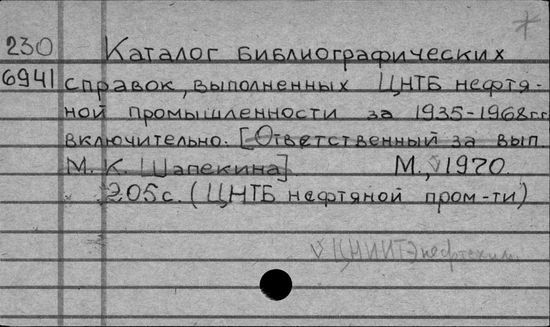 230 Каталог библиографических
6941 справок, выполненных ЦНТБ нефтя-
ной промышленности за 1935-1968гг.
включительно. [Ответственный за вып.
М. К. Шапекина] М., 1970.
205с. (ЦНТБ нефтяной пром-ти)
V ЦНИИТЭнефтехим.